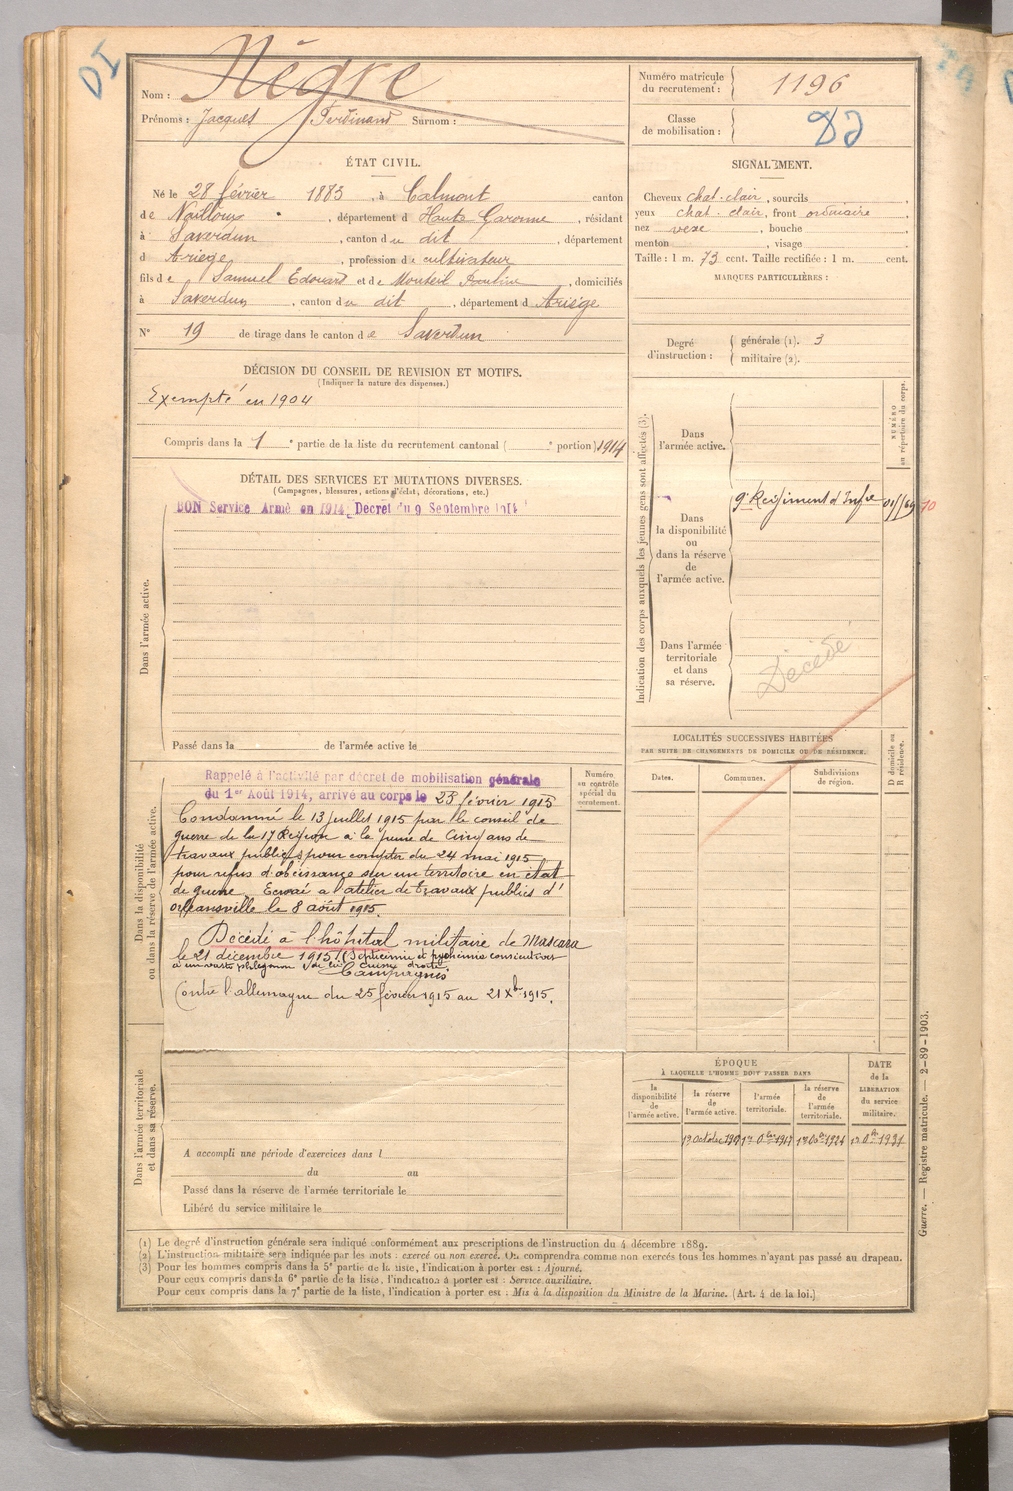 DI
Nègre
Nom :
Prénoms : Jacques Ferdinand Surnom :
Numéro matricule du recrutement : 1196
Classe de mobilisation :
ÉTAT CIVIL.
Né le 28 février 1883, à Calmont canton
de Nailloux, département d Haute Garonne, résidant
à Saverdun, canton du dit, département
d Ariège, profession de cultivateur
fils de Samuel Edouard et de Monteil Pauline, domiciliés
à Saverdun, canton du dit, département d Ariége
N° 19 de tirage dans le canton de Saverdun
SIGNALEMENT.
Cheveux chat. clair, sourcils
yeux chat. clair, front ordinaire
nez vexe, bouche
menton, visage
Taille : 1 m. 73 cent. Taille rectifiée : 1 m. cent.
MARQUES PARTICULIÈRES :
Degré d'instruction : générale (1). 3
militaire (2).
DÉCISION DU CONSEIL DE REVISION ET MOTIFS.
(Indiquer la nature des dispenses.)
Exempté en 1904
Compris dans la 1e partie de la liste du recrutement cantonal ( e portion) 1914
DÉTAIL DES SERVICES ET MUTATIONS DIVERSES.
(Campagnes, blessures, actions d'éclat, décorations, etc.)
BON Service Armé en 1914, Décret du 9 Septembre 1914
Dans l'armée active.
Passé dans la de l'armée active le
Indication des corps auxquels les jeunes gens sont affectés (3).
NUMÉRO au répertoire du corps.
Dans l'armée active.
Dans la disponibilité ou dans la réserve de l'armée active.
9e Régiment d'Infie
10
Dans l'armée territoriale et dans sa réserve.
Décédé
Dans la disponibilité ou dans la réserve de l'armée active.
Rappelé à l'activité par décret de mobilisation générale
du 1er Août 1914, arrivé au corps le 25 février 1915
Condamné le 13 juillet 1915 par le conseil de
guerre de la 17 Région a la peine de Cinq ans de
travaux publics pour compter du 24 mai 1915
pour refus d'obéissance sur un territoire en état
de guerre. Ecroué a l'atelier de travaux publics d'
orléansville le 8 août 1915.
Décédé à l'hôpital militaire de Mascara
le 21 décembre 1915. (Septicémie et pyohémie consécutives
a un vaste phlegmon de la cuisse droite)
Campagnes
Contre l'allemagne du 25 février 1915 au 21 Xbre 1915.
Numéro au contrôle spécial du recrutement.
LOCALITÉS SUCCESSIVES HABITÉES
PAR SUITE DE CHANGEMENTS DE DOMICILE OU DE RÉSIDENCE.
Dates. Communes. Subdivisions de région.
D domicile ou R résidence.
Dans l'armée territoriale et dans sa réserve.
A accompli une période d'exercices dans l
du au
Passé dans la réserve de l'armée territoriale le
Libéré du service militaire le
ÉPOQUE
À LAQUELLE L'HOMME DOIT PASSER DANS
la disponibilité de l'armée active.
la réserve de l'armée active.
l'armée territoriale.
la réserve de l'armée territoriale.
DATE de la LIBÉRATION du service militaire.
(1) Le degré d'instruction générale sera indiqué conformément aux prescriptions de l'instruction du 4 décembre 1889.
(2) L'instruction militaire sera indiquée par les mots : exercé ou non exercé. On comprendra comme non exercés tous les hommes n'ayant pas passé au drapeau.
(3) Pour les hommes compris dans la 5e partie de la liste, l'indication à porter est : Ajourné.
Pour ceux compris dans la 6e partie de la liste, l'indication à porter est : Service auxiliaire.
Pour ceux compris dans la 7e partie de la liste, l'indication à porter est : Mis à la disposition du Ministre de la Marine. (Art. 4 de la loi.)
Guerre. — Registre matricule. — 2-89-1903.